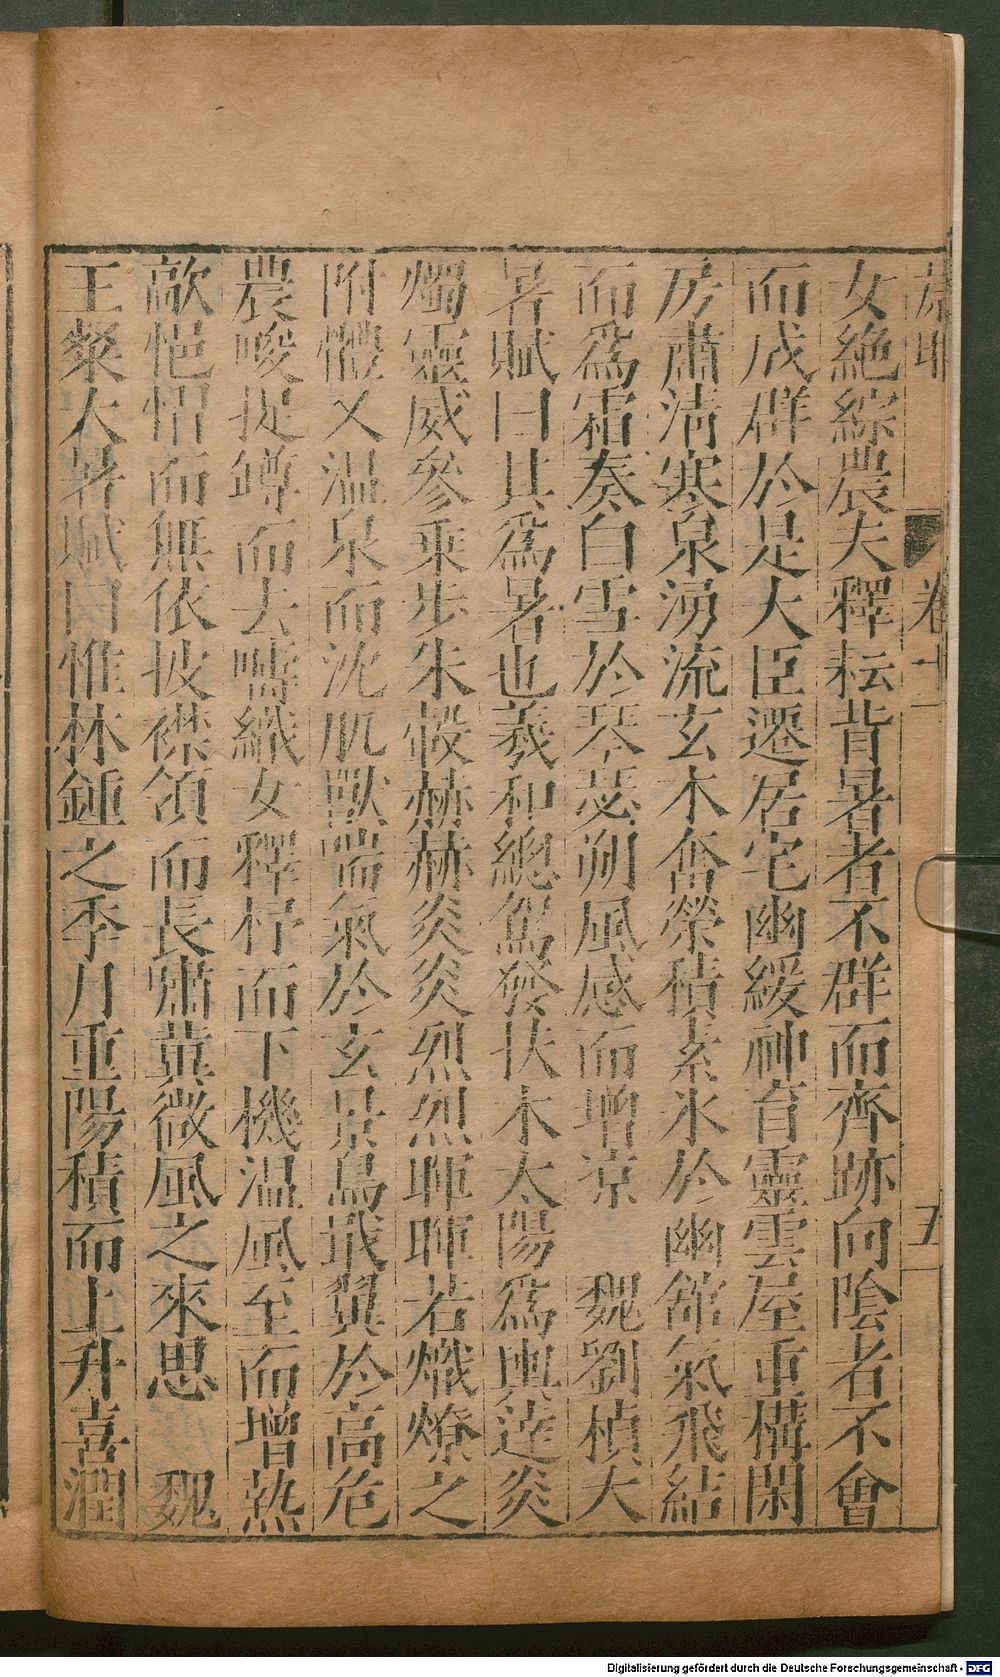 卷十一
五
女絶綜農夫釋耘背暑者不群而齊跡向陰者不會
而成群於是大臣遷居宅幽緩神育靈雲屋重構閑
房肅清寒泉湧流玄木奮榮積素氷於幽舘氣飛結
而爲霜奏白雪於琴瑟朔風感而增凉　魏劉楨大
暑賦曰其爲暑也羲和總駕發扶木太陽爲輿達炎
燭靈威參乘步朱轂赫赫炎炎烈烈暉暉若熾燎之
附體又温泉而沈肌獸喘氣於玄景鳥戢翼於高危
農畯捉鏄而去疇織女釋杼而下機温風至而增熱
歊悒慴而無依披襟領而長嘯冀微風之來思　魏
王粲大暑賦曰惟林鍾之季月重陽積而上升喜潤
Digitalisierung gefördert durch die Deutsche Forschungsgemeinschaft - DFG